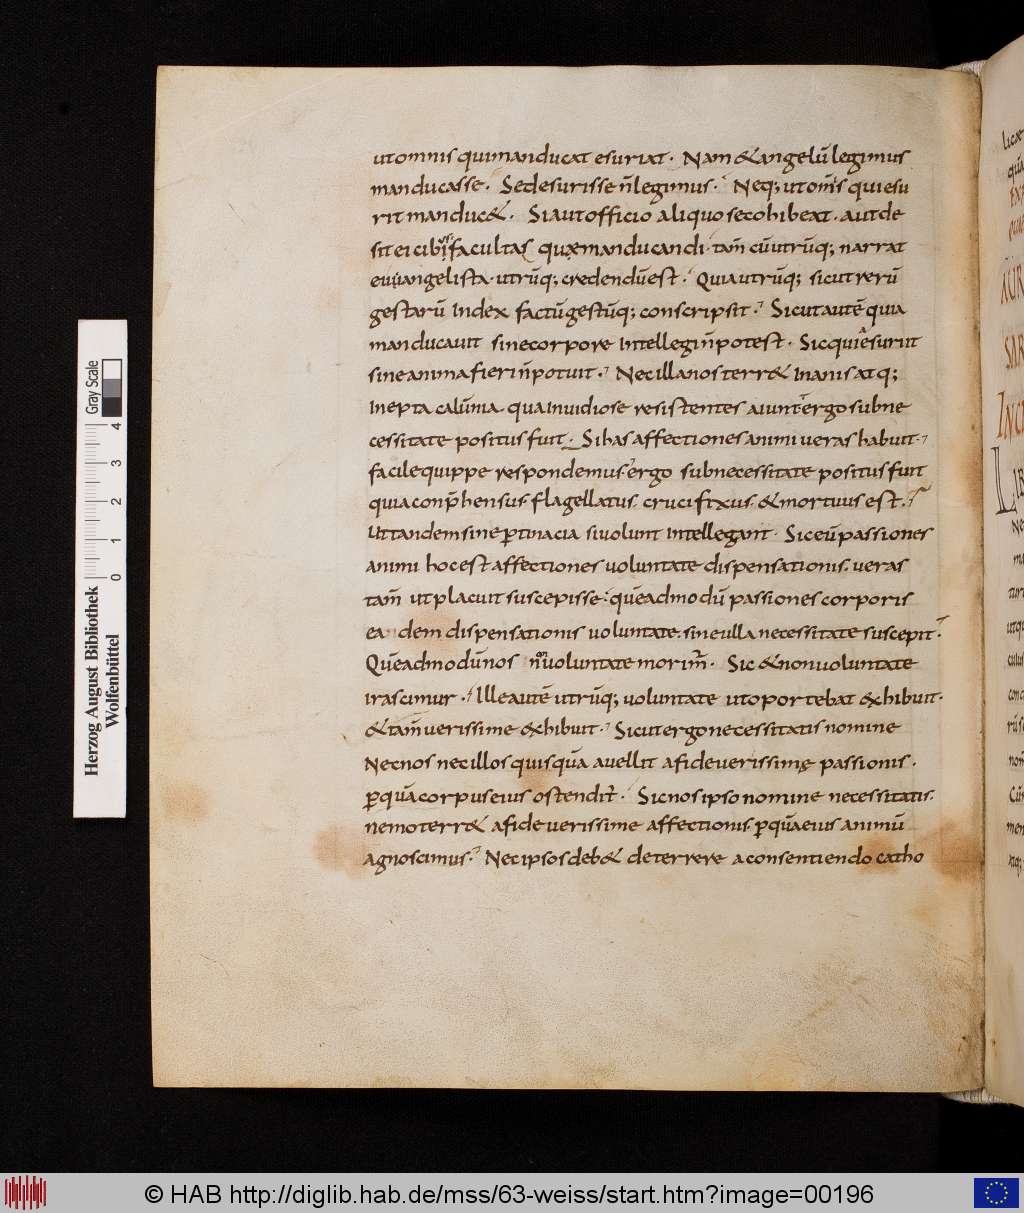 ut omnis qui manducat esuriat. Nam & angelū legimus
manducasse. Sed esurisse n̄ legimus. Neq; ut om̄s qui esu
rit manduc&. Si aut officio aliquo se cohibeat. aut de
sit ei cibus facultas quę manducandi. tam̄ cū utrūq; narrat
euangelista. utrūq; credendū est. Quia utrūq; sicut rerū
gestarū Index factū gestūq; conscripsit. Sicut autē quia
manducauit sine corpore Intellegi n̄ potest. Sic qui esuriit
sine anima fieri n̄ potuit. Nec illa nos terr& Inanis atq;
Inepta calūnia. qua Inuidiose resistentes aiunt ergo sub ne
cessitate positus fuit. Si has affectiones animi ueras habuit.
facile quippe respondemus ergo sub necessitate positus fuit
quia conp̄hensus. flagellatus. crucifixus. & mortuus est.
Ut tandem sine ꝑtinacia si uolunt Intellegant. Sic eū passiones
animi hoc est affectiones uoluntate dispensationis. ueras
tam̄ ut placuit suscepisse. quēadmodū passiones corporis
ea dem dispensationis uoluntate. sine ulla necessitate suscepit.
Quēadmodū nos non uoluntate morim̄. Sic & non uoluntate
irascimur. Ille autē utrūq; uoluntate ut oportebat exhibuit.
& tam̄ uerissime exhibuit. Sicut ergo necessitatis nomine
Nec nos nec illos quisquā auellit a fide uerissimę passionis.
ꝑ quā corpus eius ostendit̄. Sic nos ipso nomine necessitatis.
nemo terr& a fide uerissime affectionis. ꝑ quā eius animū
agnoscimus. Nec ipsos deb& deterrere a consentiendo catho
Gray Scale
4
3
2
1
0
Herzog August Bibliothek
Wolfenbüttel
© HAB http://diglib.hab.de/mss/63-weiss/start.htm?image=00196